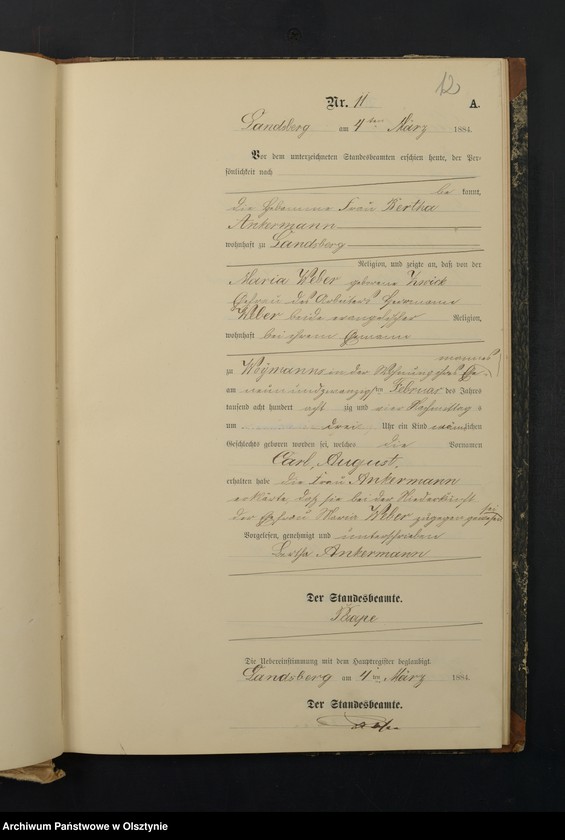 12
Nr. 11 A.
Landsberg am 4ten März 1884.
Vor dem unterzeichneten Standesbeamten erschien heute, der Per-
sönlichkeit nach
be kannt,
die Hebamme Frau Bertha
Ankermann
wohnhaft zu Landsberg
Religion, und zeigte an, daß von der
Maria Weber geborene
Ehefrau des Arbeiters Herrmann
Weber beide evangelischer Religion,
wohnhaft bei ihrem Ehemann
mannes
zu Woymanns in der Wohnung ihres Ehe-
am neunundzwanzigsten Februar des Jahres
tausend acht hundert acht zig und vier Nachmittag s
um drei Uhr ein Kind männlichen
Geschlechts geboren worden sei, welches die Vornamen
Carl, August,
erhalten habe die Frau Ankermann
erklärte, daß sie bei der Niederkunft
der Ehefrau Maria Weber zugegen gewesen
sei
Vorgelesen, genehmigt und unterschrieben
Bertha Ankermann
Der Standesbeamte.
Die Uebereinstimmung mit dem Hauptregister beglaubigt.
Landsberg am 4ten März 1884.
Der Standesbeamte.
Archiwum Państwowe w Olsztynie